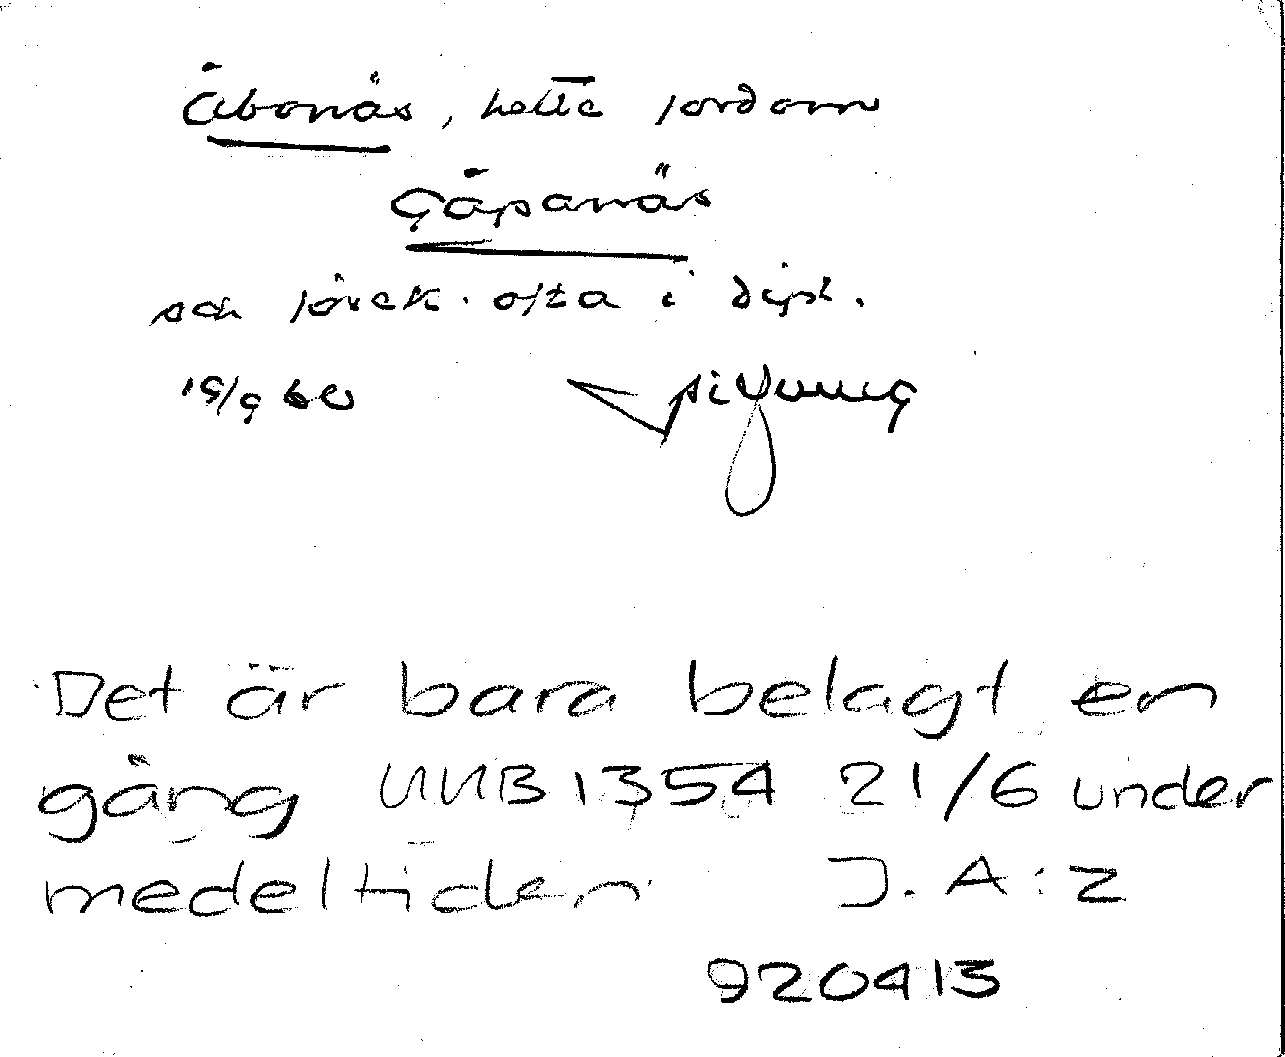 Åbonäs, hette fordom
Gåpanäs
och förek. ofta i dipl.
19/9 60
Det är bara belagt en
gång 1354 21/6 under
medeltiden J.A:z
920413